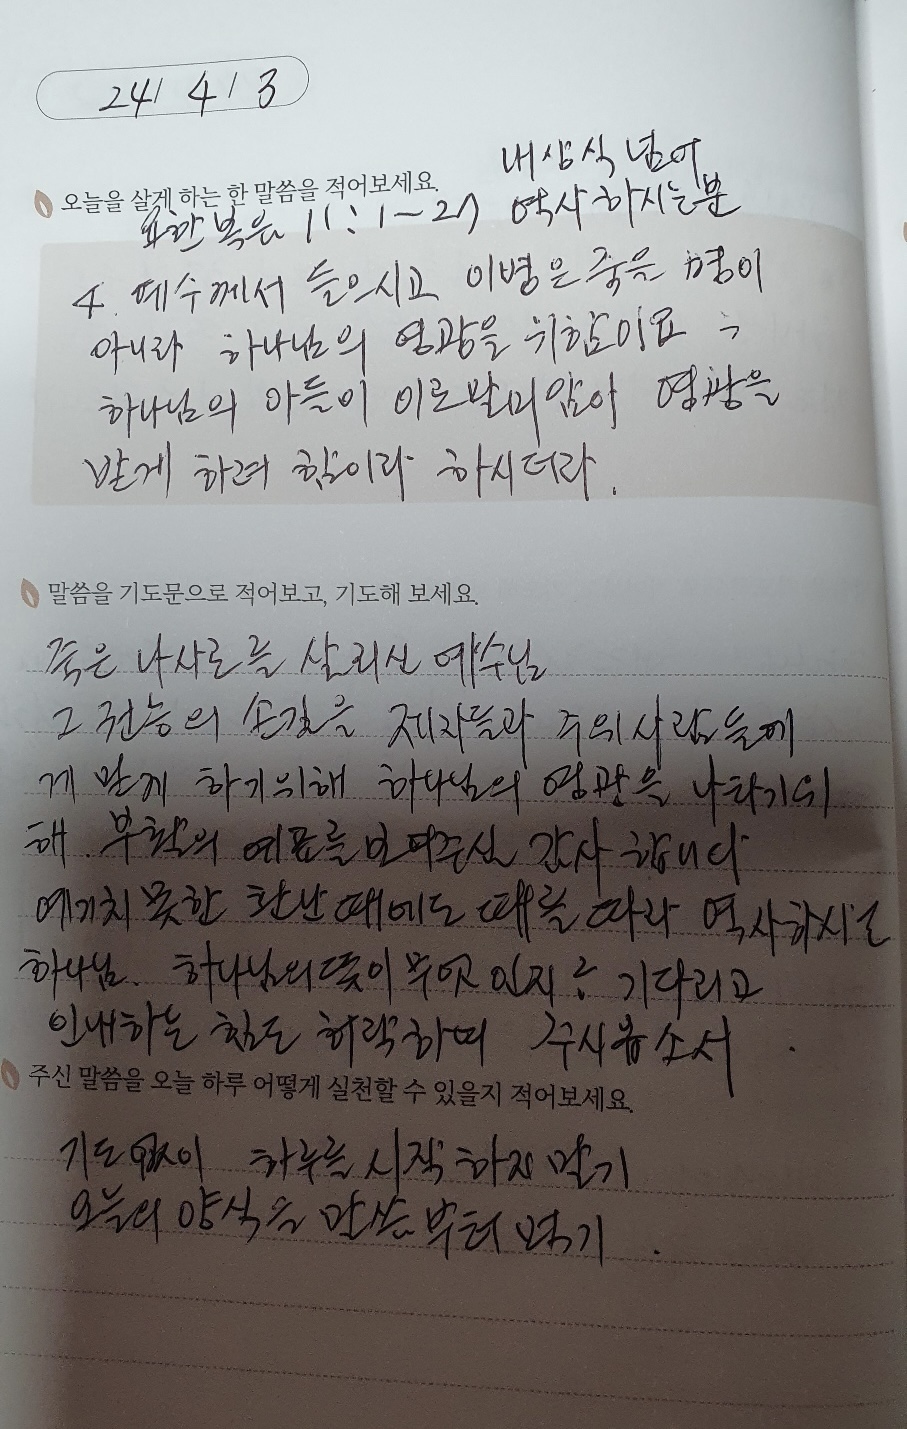 24/ 4/ 3
오늘을 살게 하는 한 말씀을 적어보세요.
내상식 넘어
역사 하시는분
요한복음 11:1~27
4. 예수께서 들으시고 이병은 죽을 병이
아니라 하나님의 영광을 위함이요
하나님의 아들이 이로말미암아 영광을
받게 하려 함이라 하시더라.
말씀을 기도문으로 적어보고, 기도해 보세요.
죽은 나사로를 살리신 예수님
그 권능의 손길을 제자들과 주의사람들에
게 믿게 하기위해 하나님의 영광을 나타기위
해. 부활의 예표를 보여주신 감사 합니다
예기치 못한 환난 때에도 때를 따라 역사하시는
하나님. 하나님의 뜻이 무엇 인지 기다리고
인내하는 힘도 허락하여 주시옵소서.
주신 말씀을 오늘 하루 어떻게 실천할 수 있을지 적어보세요.
기도 없이 하루를 시작 하지 말기
오늘의 양식을 말씀 부터 먹기.